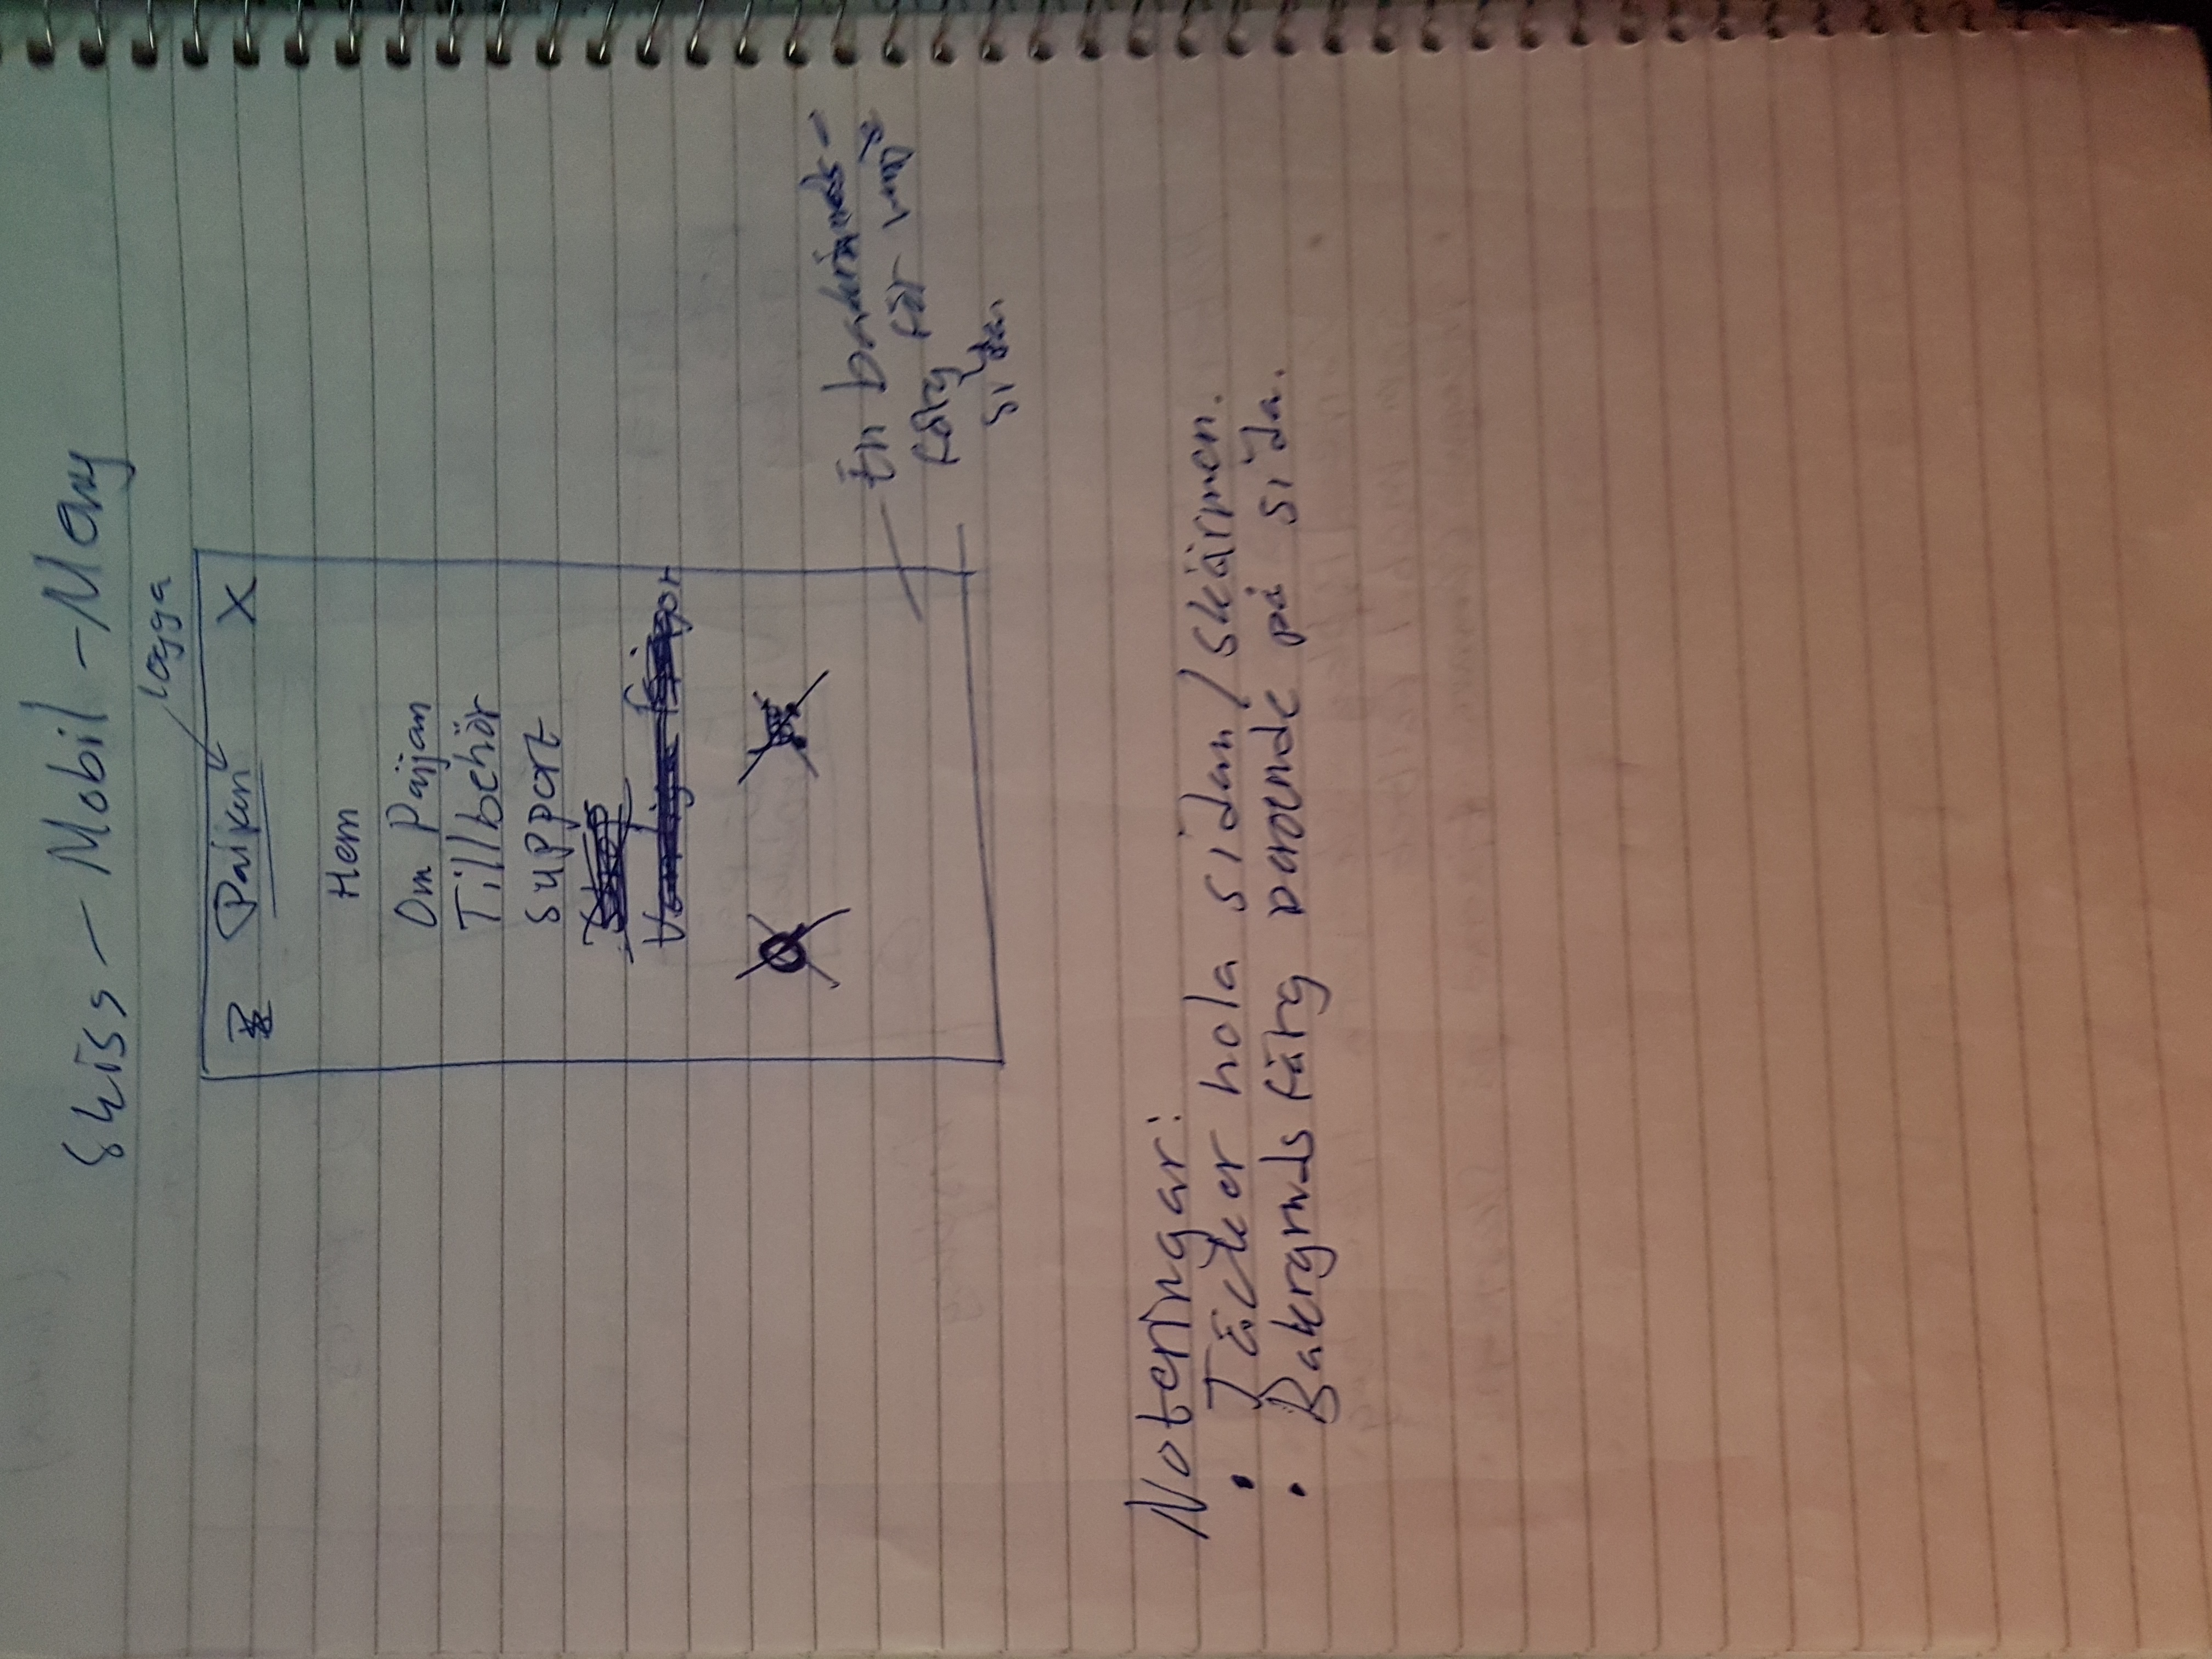 Skiss - Mobil - Meny
Logga
X
Hem
Om Paijan
Tillbehör
Support
Shop
Vanliga Frågor
En bakgrunds-
färg för varje
sidan
Noteringar:
• Täcker hela sidan / skärmen.
• Bakgrundsfärg beroende på sida.